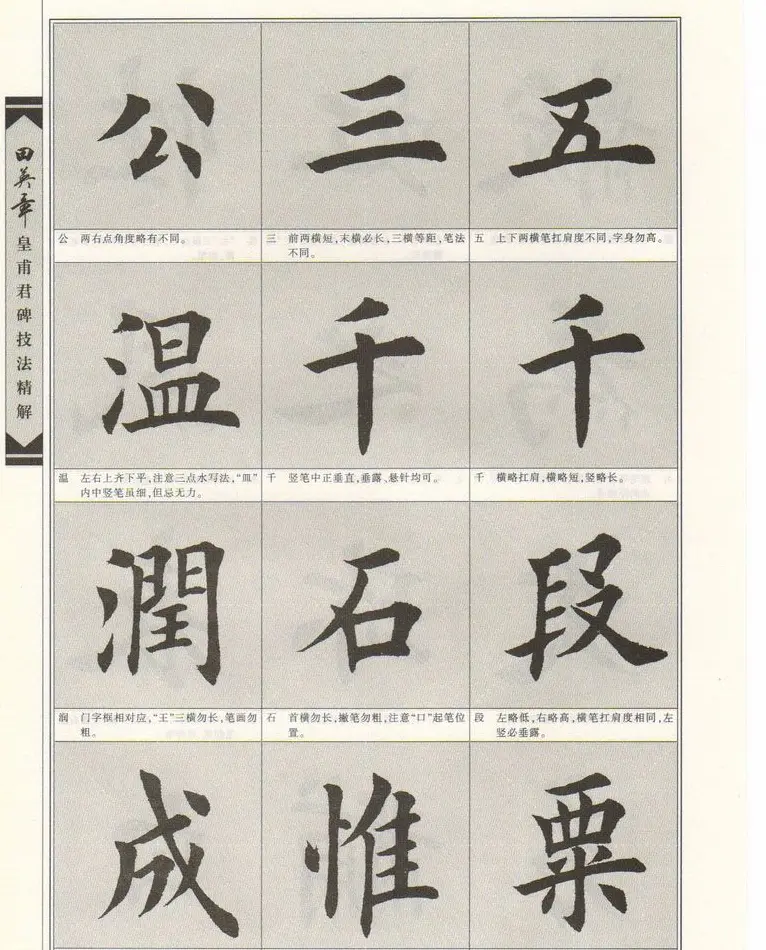 田英章皇甫君碑技法精解
公 三 五
公 两右点角度略有不同。
三 前两横短,末横必长,三横等距,笔法
不同。
五 上下两横笔扛肩度不同,字身勿高。
温 千 千
温 左右上齐下平,注意三点水写法,“皿”
内中竖笔虽细,但忌无力。
千 竖笔中正垂直,垂露、悬针均可。
千 横略扛肩,横略短,竖略长。
潤 石 段
润 门字框相对应,“王”三横勿长,笔画勿
粗。
石 首横勿长,撇笔勿粗,注意“口”起笔位
置。
段 左略低,右略高,横笔扛肩度相同,左
竖必垂露。
成 惟 粟